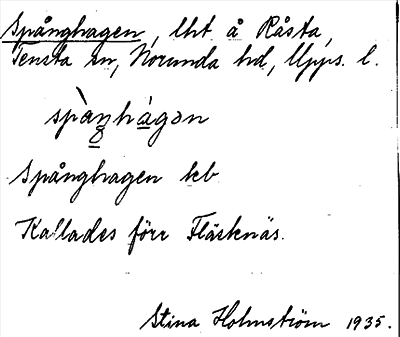 Spånghagen, lht å Råsta,
Tensta sn, Norunda hd, Upps. l.
spàŋhágən
Spånghagen kb
Kallades förr Fläcknäs.
Stina Holmström 1935.